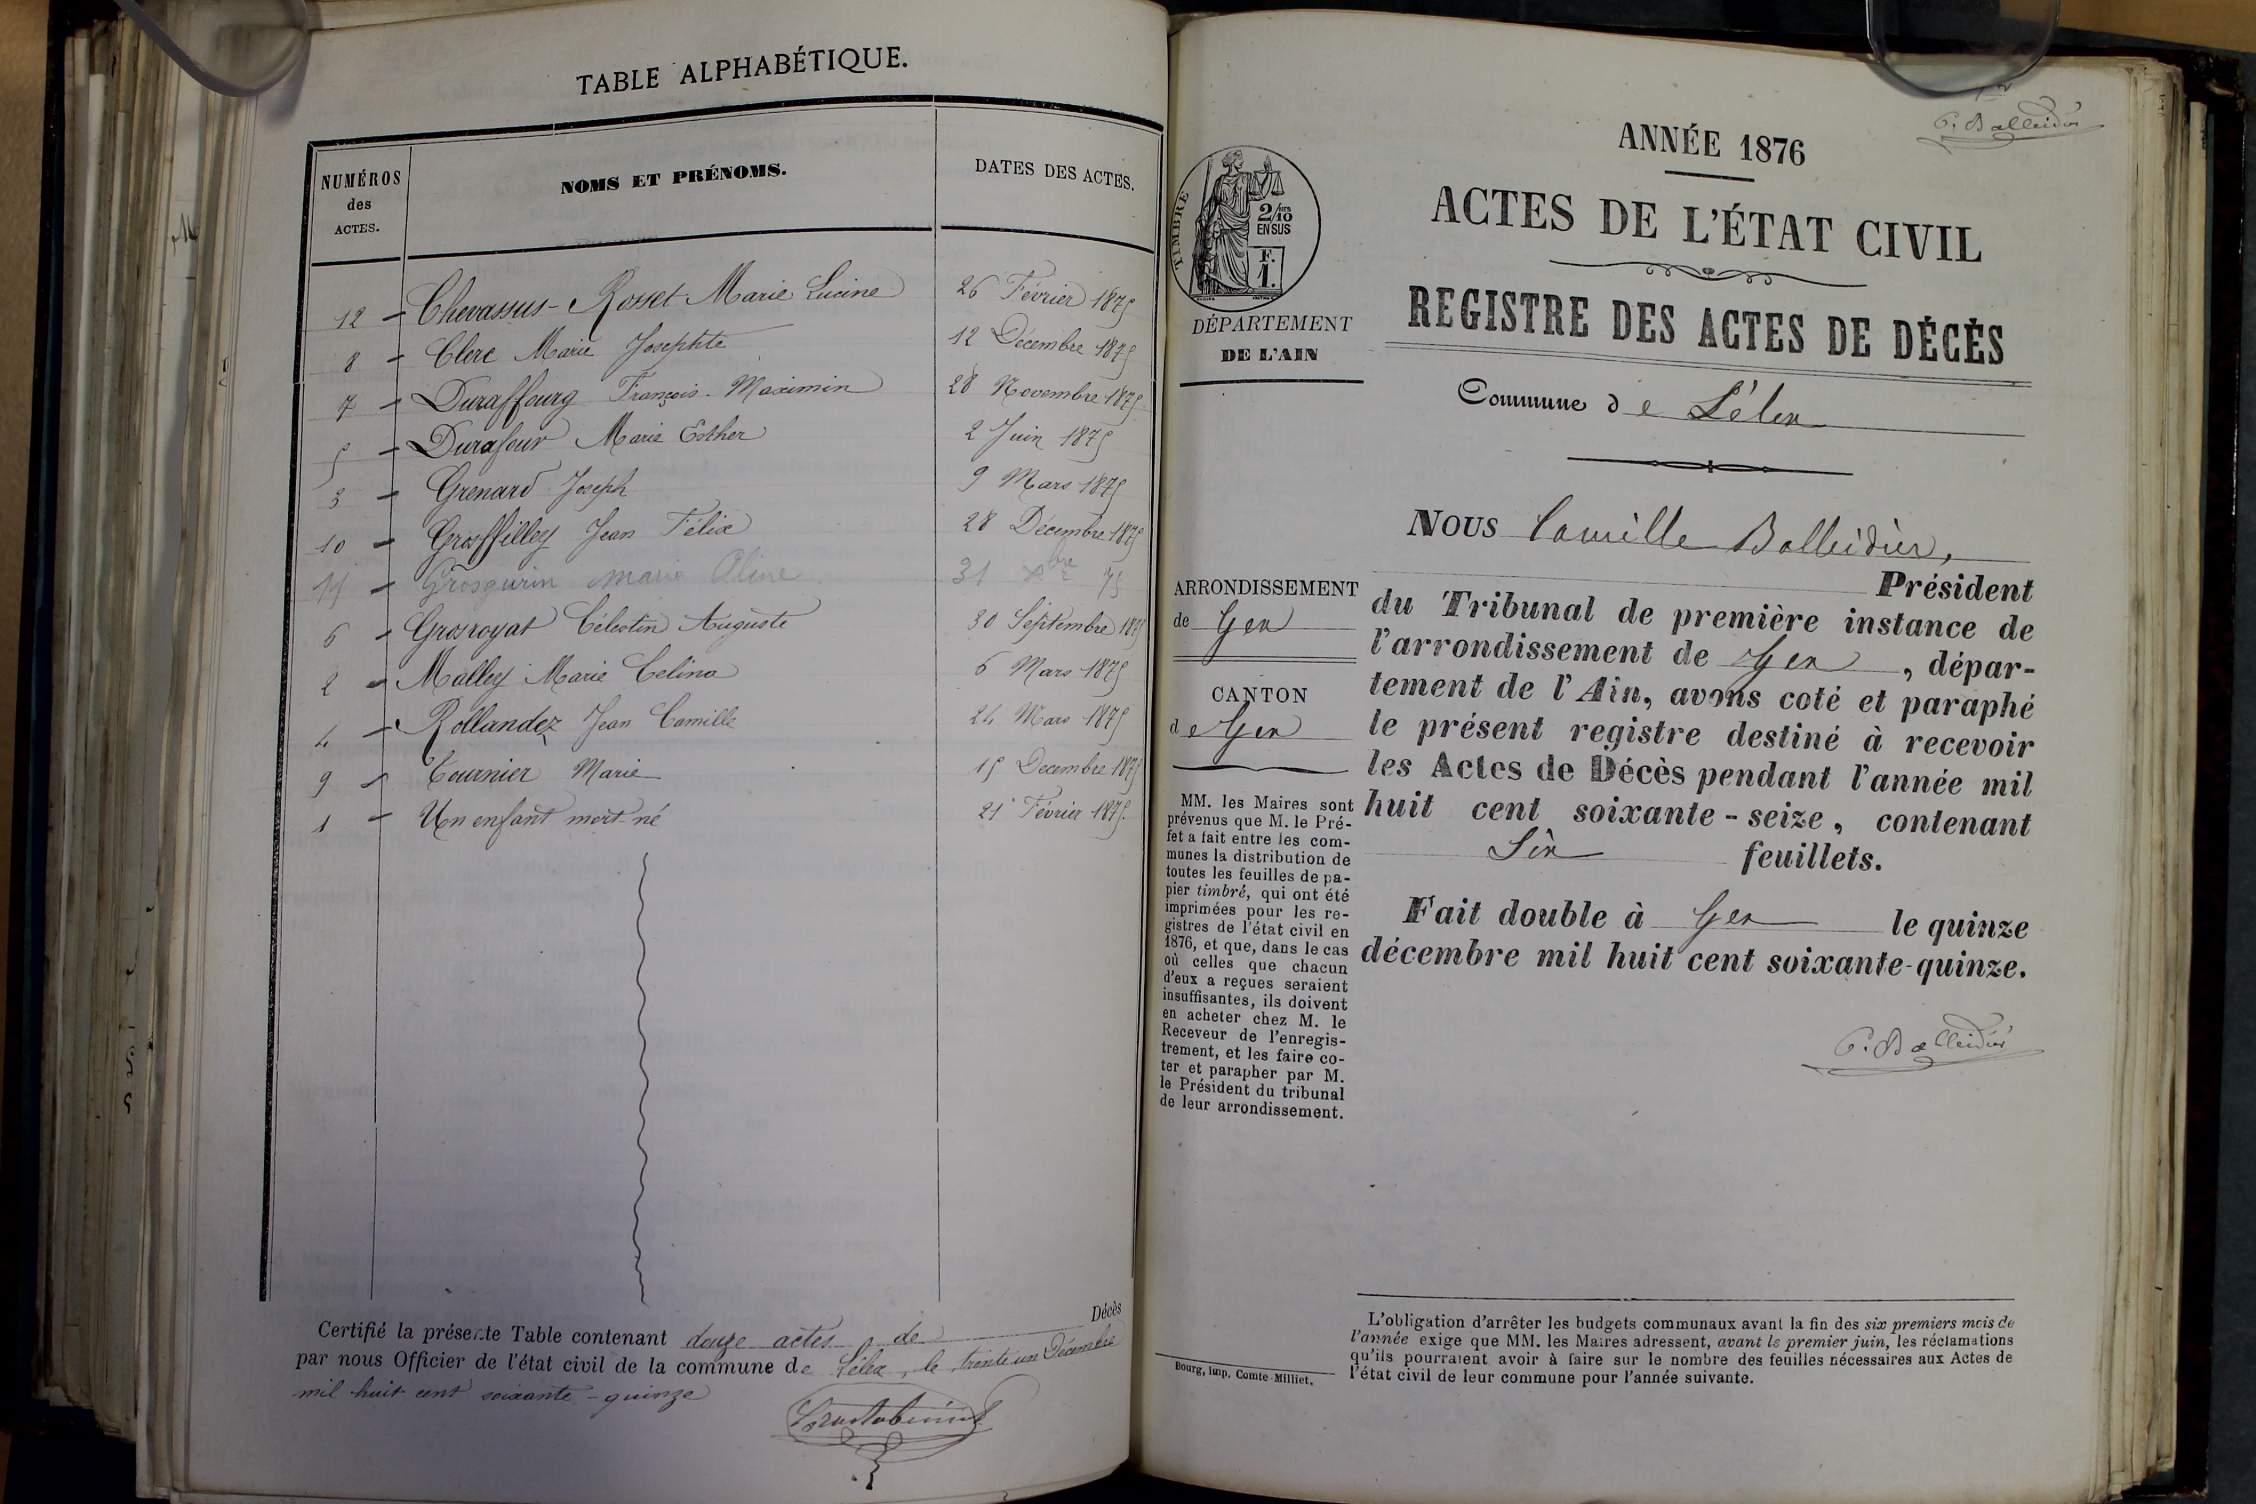 TABLE ALPHABÉTIQUE.
NUMÉROS des ACTES. NOMS ET PRÉNOMS. DATES DES ACTES.
12 – Chevassus-Rosset Marie Lucine 26 Février 1875
8 – Clerc Marie Josephte 12 Décembre 1875
7 – Duraffourg François-Maximin 28 Novembre 1875
5 – Durafour Marie Esther 2 Juin 1875
3 – Grenard Joseph 9 Mars 1875
10 – Grosfilley Jean Félix 28 Décembre 1875
11 – Grosgurin Marie Aline 31 Xbre 75
6 – Grosroyat Célestin Auguste 30 Septembre 1875
2 – Malley Marie Celina 6 Mars 1875
4 – Rollandez Jean Camille 24 Mars 1875
9 – Tournier Marie 15 Decembre 1875
1 – Un enfant mort-né 21 Février 1875.
Certifié la présente Table contenant douze actes de Décès
par nous Officier de l'état civil de la commune de Lélex, le trente un Décembre
mil huit cent soixante-quinze
C. Balleidier
ANNÉE 1876
ACTES DE L'ÉTAT CIVIL
REGISTRE DES ACTES DE DÉCÈS
Commune de Lélex
TIMBRE
2/10 EN SUS
F. 1.
DÉPARTEMENT
DE L'AIN
ARRONDISSEMENT
de Gex
CANTON
de Gex
MM. les Maires sont
prévenus que M. le Pré-
fet a fait entre les com-
munes la distribution de
toutes les feuilles de pa-
pier timbré, qui ont été
imprimées pour les re-
gistres de l'état civil en
1876, et que, dans le cas
où celles que chacun
d'eux a reçues seraient
insuffisantes, ils doivent
en acheter chez M. le
Receveur de l'enregis-
trement, et les faire co-
ter et parapher par M.
le Président du tribunal
de leur arrondissement.
NOUS Camille Balleidier,
Président
du Tribunal de première instance de
l'arrondissement de Gex, dépar-
tement de l'Ain, avons coté et paraphé
le présent registre destiné à recevoir
les Actes de Décès pendant l'année mil
huit cent soixante-seize, contenant
Six feuillets.
Fait double à Gex le quinze
décembre mil huit cent soixante-quinze.
C. Balleidier
L'obligation d'arrêter les budgets communaux avant la fin des six premiers mois de
l'année exige que MM. les Maires adressent, avant le premier juin, les réclamations
qu'ils pourraient avoir à faire sur le nombre des feuilles nécessaires aux Actes de
l'état civil de leur commune pour l'année suivante.
Bourg, imp. Comte-Milliet.